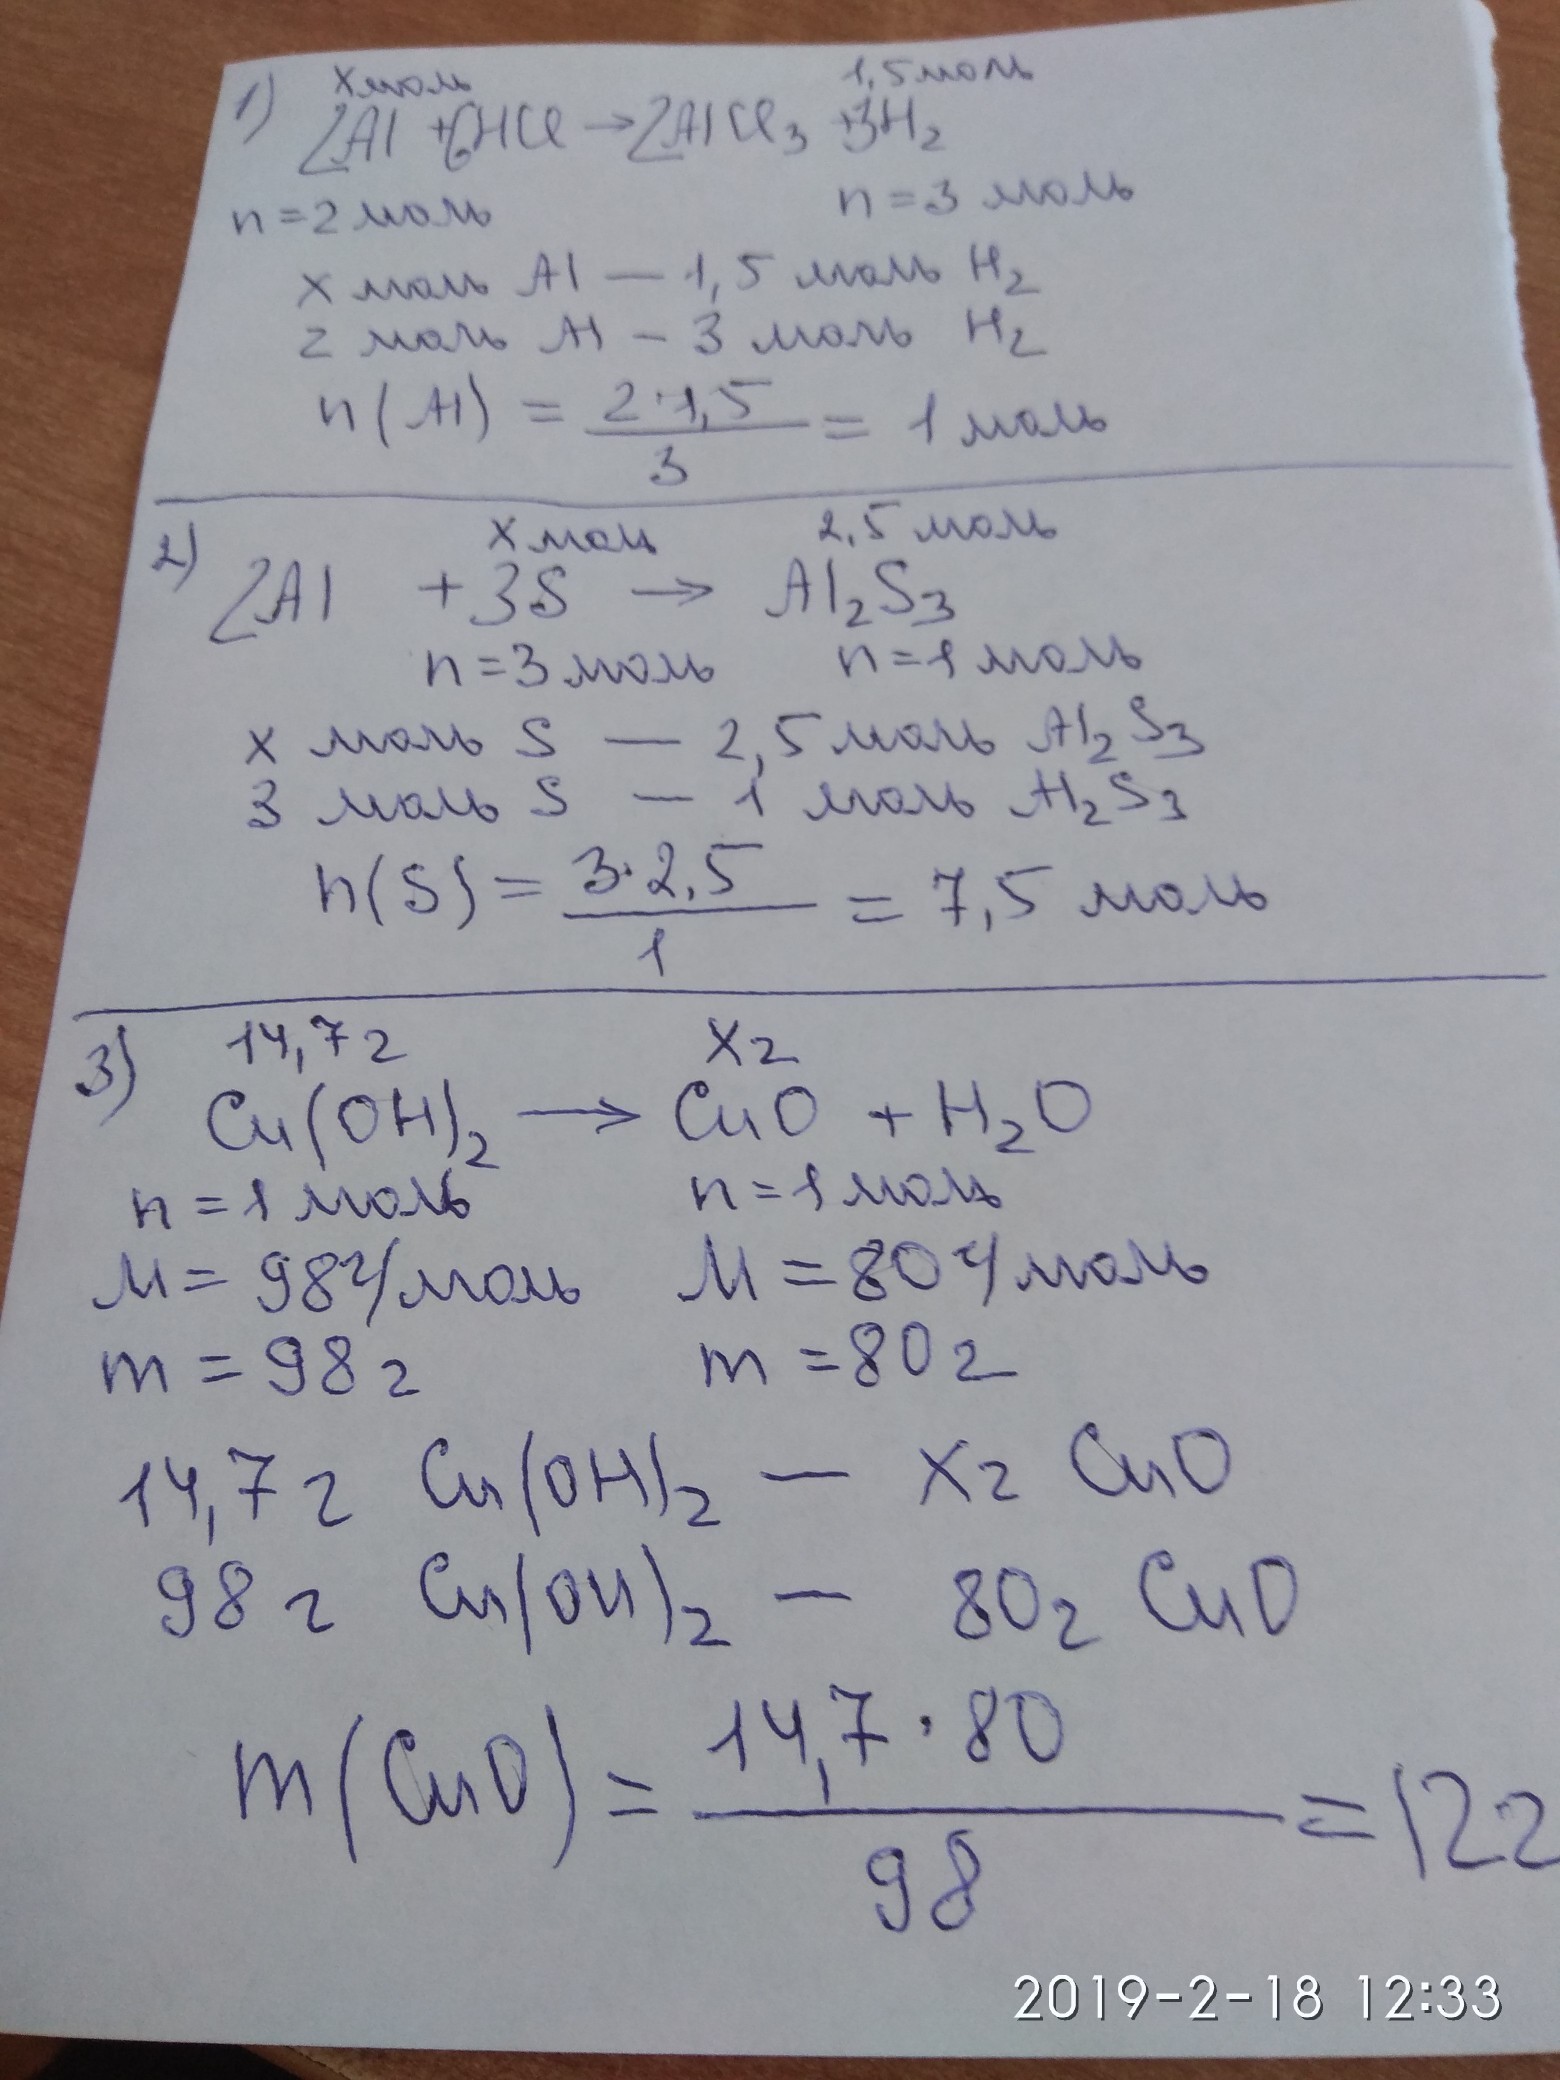 х моль 1,5 моль
1) 2Al + 6HCl → 2AlCl₃ + 3H₂
n = 2 моль n = 3 моль
х моль Al — 1,5 моль H₂
2 моль Al — 3 моль H₂
n(Al) = 2·1,5 / 3 = 1 моль
х моль 2,5 моль
2) 2Al + 3S → Al₂S₃
n = 3 моль n = 1 моль
х моль S — 2,5 моль Al₂S₃
3 моль S — 1 моль Al₂S₃
n(S) = 3·2,5 / 1 = 7,5 моль
14,7 г х г
3) Cu(OH)₂ → CuO + H₂O
n = 1 моль n = 1 моль
M = 98 г/моль M = 80 г/моль
m = 98 г m = 80 г
14,7 г Cu(OH)₂ — х г CuO
98 г Cu(OH)₂ — 80 г CuO
m(CuO) = 14,7 · 80 / 98 = 12 г
2019-2-18 12:33